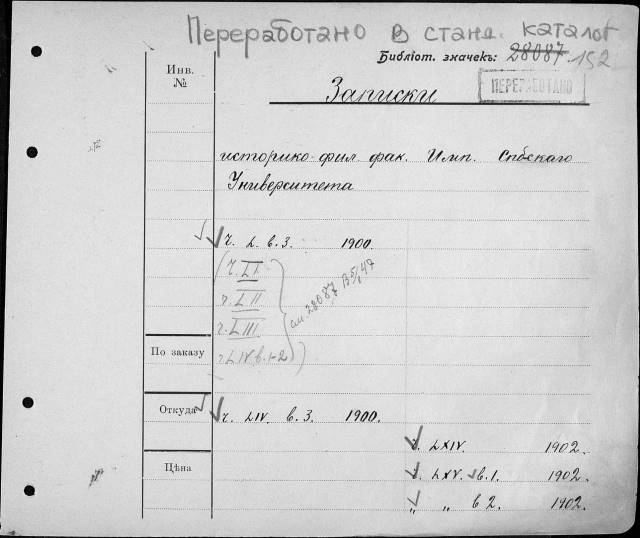 Переработано в станд. каталог
Библіот. значекъ: 28087 152
ПЕРЕРАБОТАНО
Инв.
№
Записки
историко-фил. фак. Имп. Спбскаго
Университета
ч. L. в. 3. 1900.
ч. LI
ч. LII
ч. LIII
ч. LIV в. 1-2
см 28087
По заказу
Откуда
ч. LIV. в. 3. 1900.
ч. LXIV. 1902.
Цѣна
ч. LXV. в. 1. 1902.
„ „ в 2. 1902.